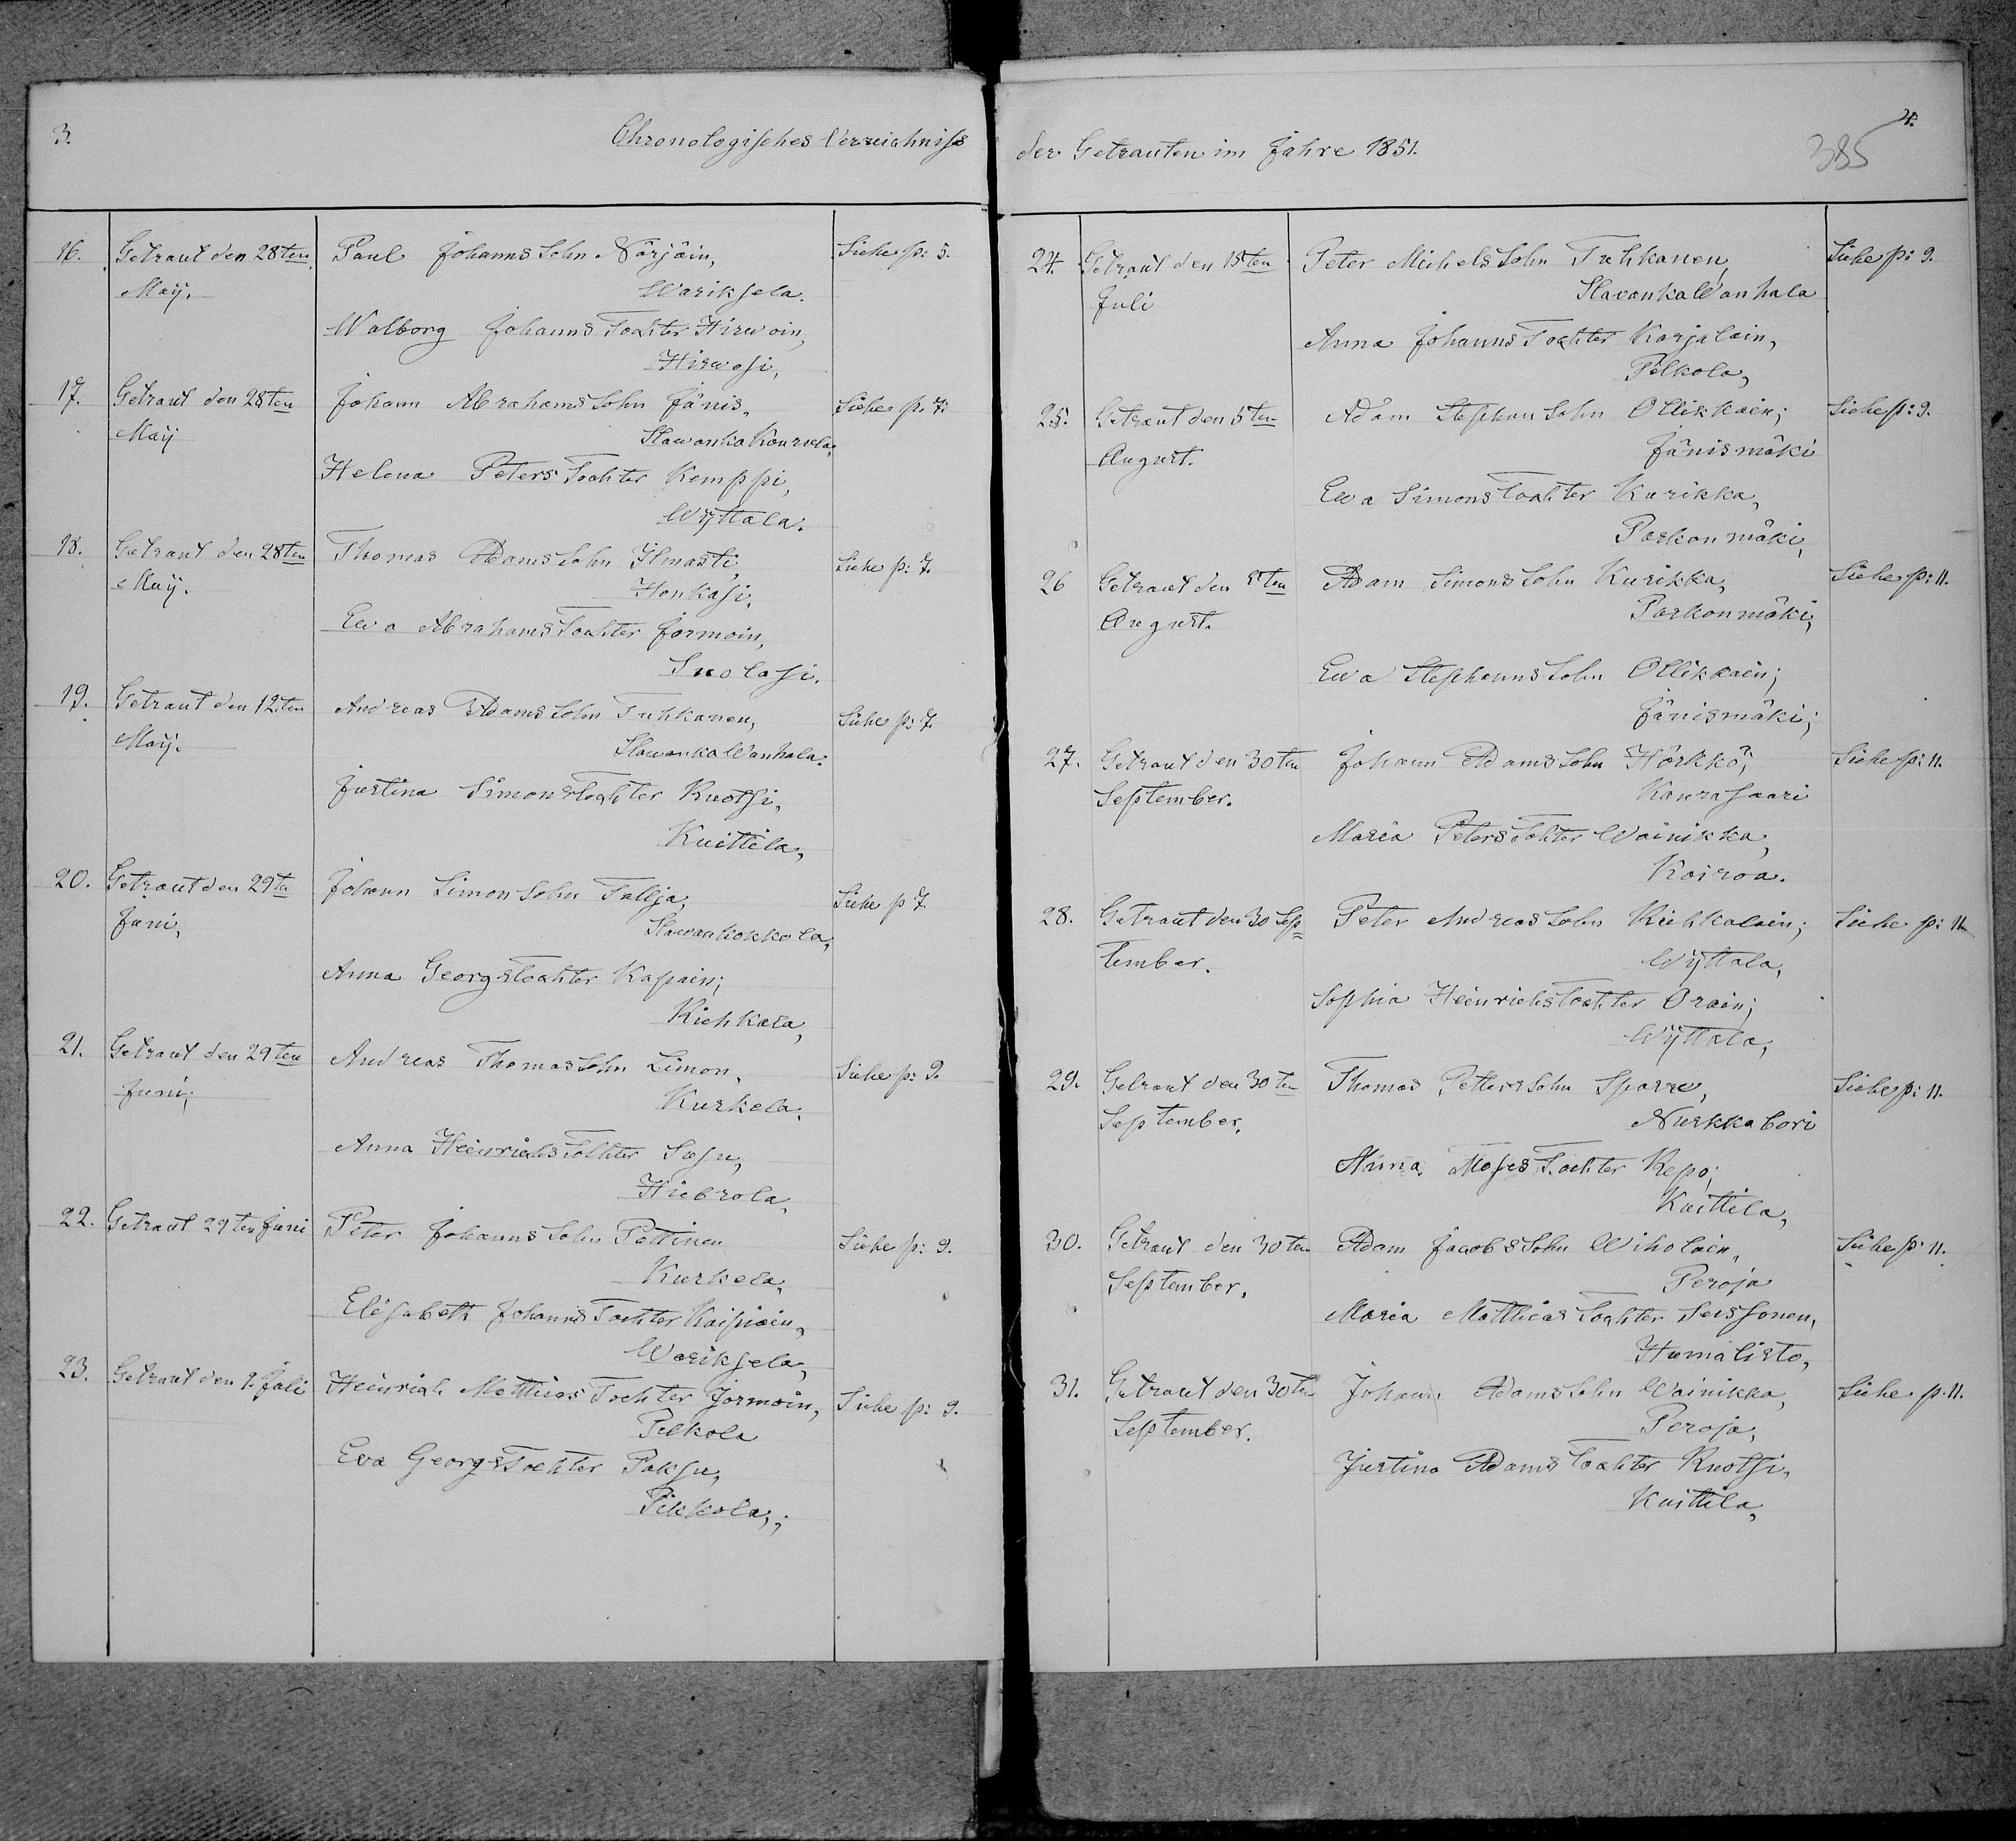 3.
Chronologisches Verzeichniss
16. Getraut den 28ten Paul Johanns Sohn Närjäin, Siehe p: 5.
May. Wariksela.
Walborg Johanns Tochter Hirwoin,
Hirwosi,
17. Getraut den 28ten Johann Abrahams Sohn Jänis, Siehe p. 7.
May Slawanka Kourula,
Helena Peters Tochter Kemppi,
Wÿttala.
18. Getraut den 28ten Thomas Adams Sohn Ilmasti, Siehe p: 7.
May. Honkasi,
Ewa Abrahams Tochter Jormoin,
Suolasi.
19. Getraut den 12ten Andreas Adams Sohn Tuhkanen, Siehe p: 7.
May. Slawanka Wanhala.
Justina Simons Tochter Kuotsi,
Kuittila,
20. Getraut den 29te Johann Simon Sohn Tallja, Siehe p 7.
Juni, Slawankokkola,
Anna Georgs Tochter Kapain;
Kiehkala,
21. Getraut den 29ten Andreas Thomas Sohn Limon, Siehe p: 9.
Juni; Kurkela,
Anna Heinrichs Tochter Susu,
Hiebrola,
22. Getraut 29ten Juni Peter Johanns Sohn Pottinen Siehe p: 9.
Kurkela,
Elisabeth Johanns Tochter Kaipiain,
Wariksela,
23. Getraut den 1. Juli Heinrich Matthias Tochter Jormoin, Siehe p: 9.
Pelkola
Eva Georgs Tochter Paksu,
Pikkola,;
4.
385
der Getrauten im Jahre 1851.
24. Getraut den 15ten Peter Michels Sohn Tuhkanen, Siehe p: 9.
Juli Slavanka Wanhala
Anna Johanns Tochter Karjalain,
Pelkola,
25. Getraut den 5ten Adam Stephan Sohn Ollikkain; Siehe p: 9.
August. Jänismäki
Ewa Simons Tochter Kurikka,
Porkonmäki,
26 Getraut den 5ten Adam Simons Sohn Kurikka, Siehe p: 11.
August. Porkonmäki,
Ewa Stephanns Sohn Ollikkain;
Jänismäki;
27. Getraut den 30ten Johann Adams Sohn Hörkkö, Siehe p: 11.
September. Kaurasaari
Maria Peters Tohter Wainikka,
Koiroa.
28. Getraut den 30 Sep= Peter Andreas Sohn Kiehkalain; Siehe p: 11.
tember. Wÿttala,
Sophia Heinrichs Tochter Orain;
Wÿttala,
29. Getraut den 30ten Thomas Petters Sohn Sparre, Siehe p: 11.
September, Nurkkabori
Anna Moses Tochter Repo;
Kuittila,
30. Getraut den 30ten Adam Jacobs Sohn Wiholain, Siehe p: 11.
September. Peroja
Maria Matthias Tochter Seissonen,
Humalisto,
31. Getraut den 30ten Johann Adams Sohn Wainikka, Siehe p. 11.
September. Peroja,
Justina Adams Tochter Kuotsi,
Kuittila,